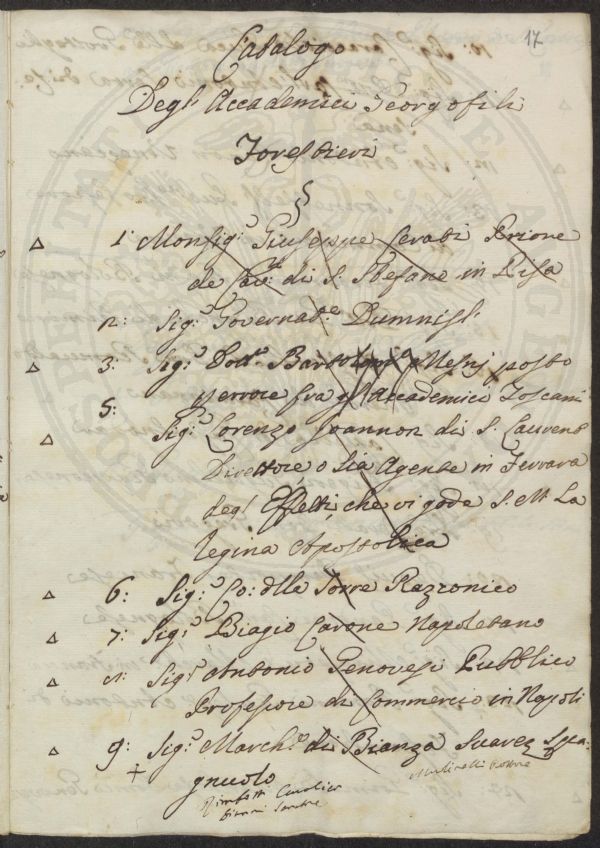 17
Catalogo
Degl' Accademici Georgofili
Forestieri
1: Monsig.r Giuseppe Cerati Priore
de Cav: di S. Stefano in Pisa
2: Sig.r Governat.e Dumnisl
3: Sig.r Dott.r Bartolomeo Mesnj posto
p errore fra gl' Accademici Toscani
5:
Sig.r Lorenzo Joannon di S. Laurent
Direttore, o sia Agente in Ferrara
degl' Effetti, che vi gode S. M. La
Regina Apostolica
6: Sig.r Co: dlla Torre Razzonico
7: Sig.r Biagio Carone Napoletano
8: Sig.r Antonio Genovesi Pubblico
Professore di Commercio in Napoli
9: Sig.r March.e di Bianza Suarez Spa-
gnuolo